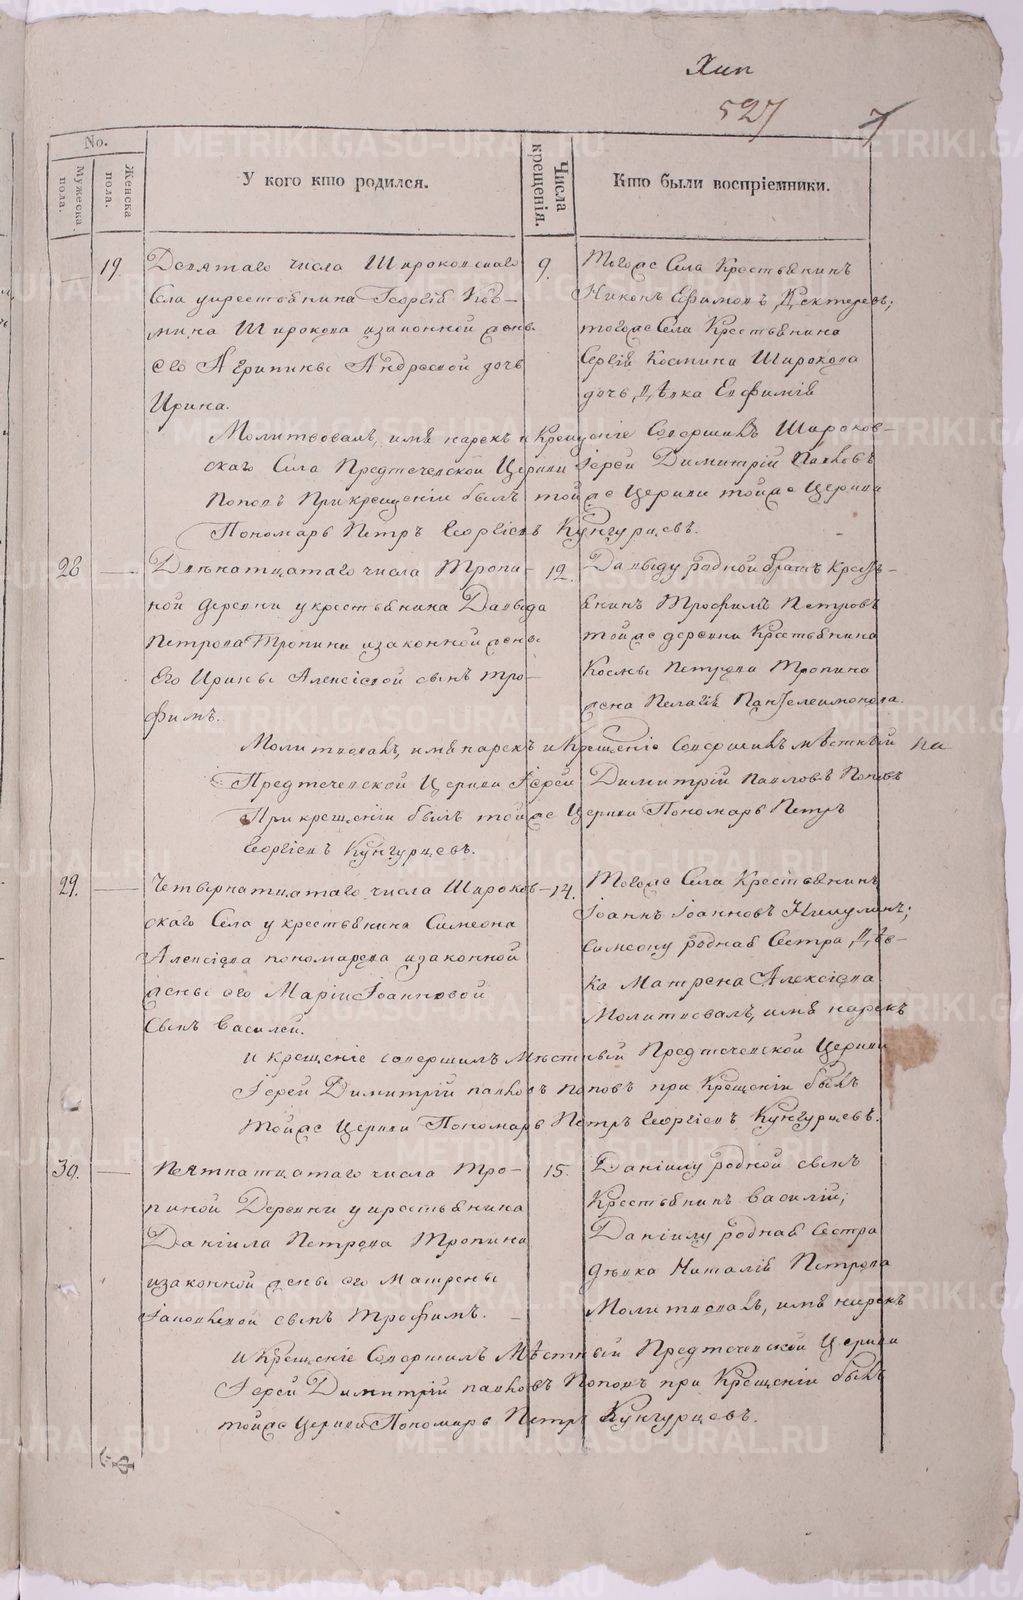 527
No.
Мужеска пола.
Женска пола.
У кого кто родился.
Числа крещенія.
Кто были воспріемники.
19. Девятаго числа Широковскаго
Села у крестьянина Георгія Коз-
мина Широкова изаконной жены
его Агрипины Андреевой дочь
Ирина.
9.
Тогожъ Села Крестьянинъ
Никонъ Ефимовъ
тогожъ Села Крестьянина
Сергія Космина Широкова
дочь дѣвка Евфимія
Молитвовалъ, имя нарекъ и Крещеніе Совершилъ Широков-
скаго Села Предтечевской Церкви Іерей Димитрій Павловъ
Поповъ При крещеніи былъ тойже Церкви тойже Церкви
Пономарь Петръ Георгіевъ Кунгурцевъ.
28 Двѣнатцатаго числа Тропи-
ной деревни у крестьянина Давыда
Петрова Тропина изаконной жены
Его Ирины Алексіевой сынъ Тро-
фимъ.
12.
Давыду родной братъ Кресть-
янинъ Трофимъ Петровъ
тойже деревни Крестьянина
Космы Петрова Тропина
жена Пелагія Пантелеимонова.
Молитвовалъ, имя нарекъ и Крещеніе Совершилъ мѣстный
Предтечевской Церкви Іерей Димитрій Павловъ Поповъ
При крещеніи былъ тойже Церкви Пономарь Петръ
Георгіевъ Кунгурцевъ.
29. Четвернатцатаго числа Широков-
скаго Села у крестьянина Симеона
Алексіева пономарева изаконной
жены его Маріи Іоанновой
Сынъ Василей.
14.
Тогожъ Села Крестьянинъ
Іоаннъ Іоанновъ
Симеону родная Сестра дѣв-
ка Матрена Алексіева
Молитвовалъ, имя нарекъ
и крещеніе совершилъ Мѣстный Предтечевской Церкви
Іерей Димитрій павловъ поповъ при Крещеніи былъ
тойже Церкви Пономарь Петръ Георгіевъ Кунгурцевъ.
30. Пятнатцатаго числа Тро-
пиной Деревни у крестьянина
Даніила Петрова Тропина
изаконной жены его Матрены
Іаковлевой сынъ Трофимъ.
15.
Даніилу родной сынъ
Крестьянинъ Василій;
Даніилу родная Сестра
дѣвка Наталія Петрова
Молитвовалъ, имя нарекъ
и Крещеніе Совершилъ Мѣстный Предтечевской Церкви
Іерей Димитрій павловъ Поповъ при Крещеніи былъ
тойже Церкви Пономарь Петръ Кунгурцевъ.
METRIKI.GASO-URAL.RU